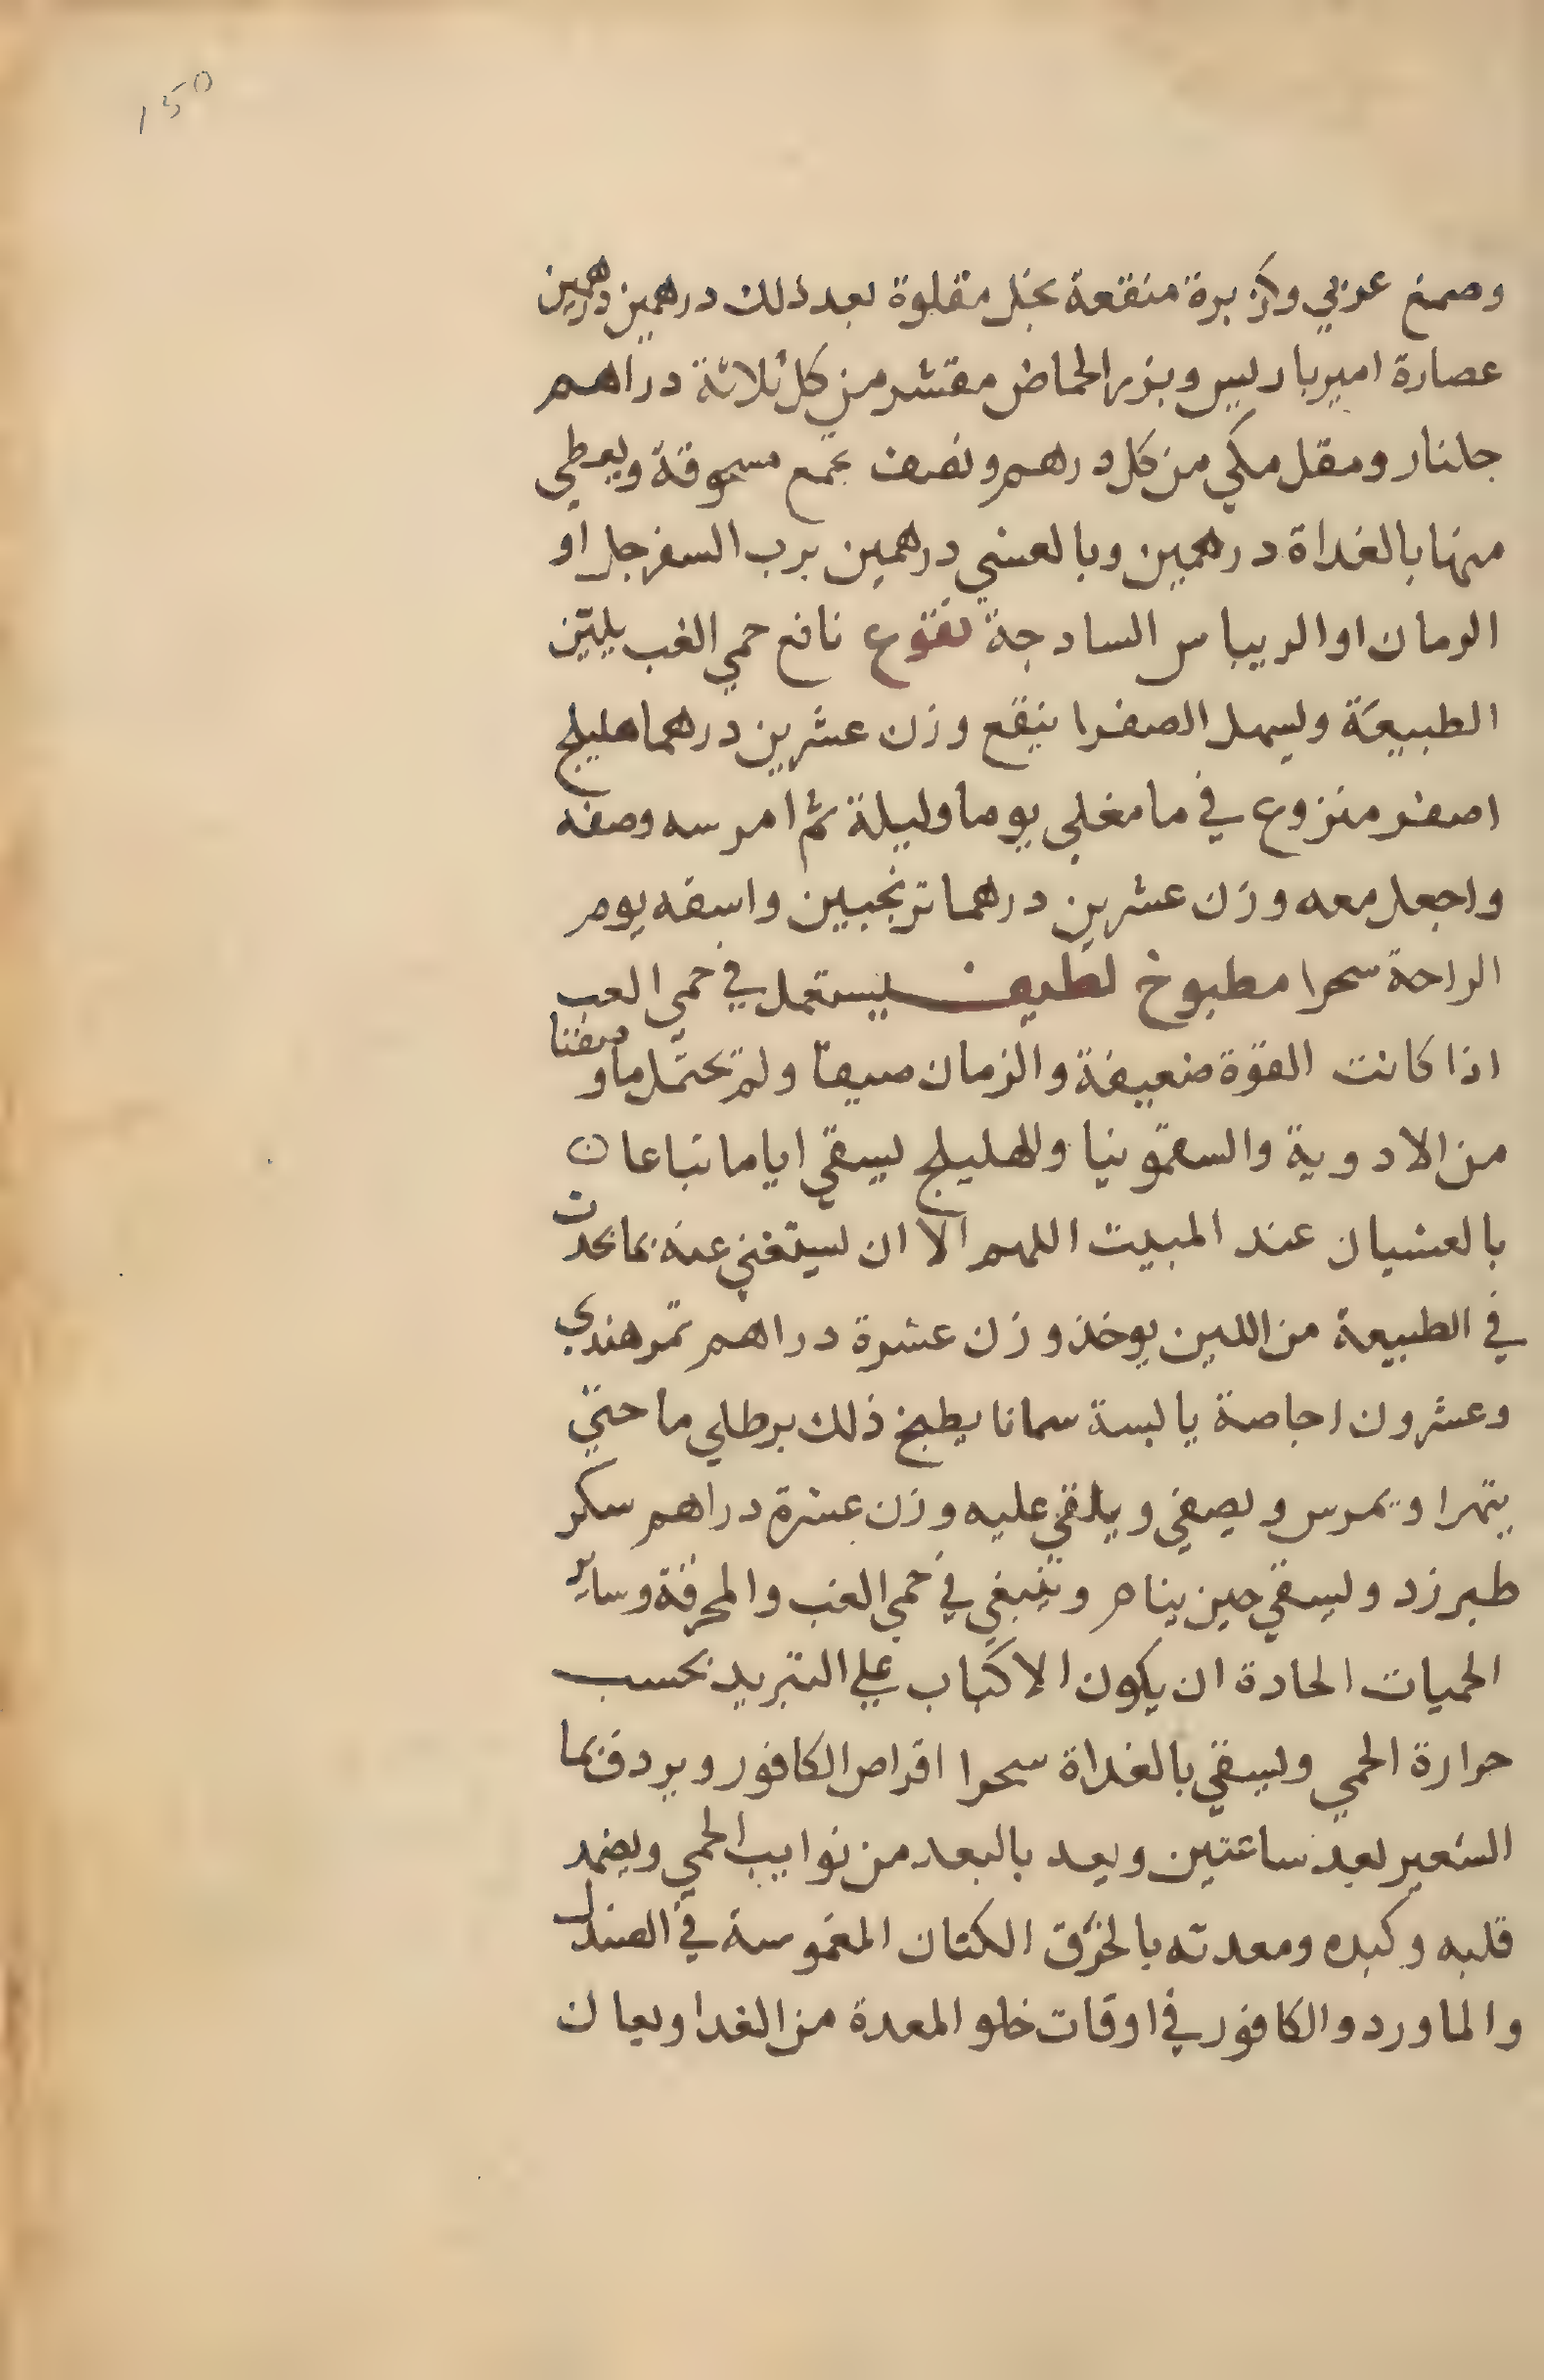 150
وصمغ عربي وكزبرة منقعة بخل مقلوة بعد ذلك درهمين درهمين
عصارة اميرباريس وبزر الحماض مقشر من كل ثلاثة دراهم
جلنار ومقل مكي من كل درهم ونصف تجمع مسحوقة ويعطي
منها بالغداة درهمين وبالعشي درهمين برب السفرجل او
الرمان او الريباس السادجة نقوع نافع حمي الغب يلين
الطبيعة ويسهل الصفرا ينقع وزن عشرين درهما هليلج
اصفر منزوع في ما مغلي يوما وليلة ثم امرسه وصفه
واجعل معه وزن عشرين درهما ترنجبين واسقه يوم
الراحة سحرا مطبوخ لطيف يستعمل في حمي الغب
اذا كانت القوة ضعيفة والزمان صيفا ولم تحتمل ما وصفنا
من الادوية والسقمونيا والهليلج يسقي اياما تباعا ن
بالعشيان عند المبيت اللهم الا ان يستغني عنه بما يحدث
في الطبيعة من اللين يوخذ وزن عشرة دراهم تمر هندي
وعشرون اجاصة يابسة سمانا يطبخ ذلك برطلي ما حتي
يتهرا ويمرس ويصفي ويلقي عليه وزن عشرة دراهم سكر
طبرزد ويسقي حين ينام وينبغي في حمي الغب والمحرقة وساير
الحميات الحادة ان يكون الاكباب علي التبريد بحسب
حرارة الحمي ويسقي بالغداة سحرا اقراص الكافور ويردف بما
الشعير بعد ساعتين ويعد بالبعد من نوايب الحمي ويضمد
قلبه وكبده ومعدته بالخرق الكتان المغموسة في الصندل
والماورد والكافور في اوقات خلو المعدة من الغدا ويعا ن